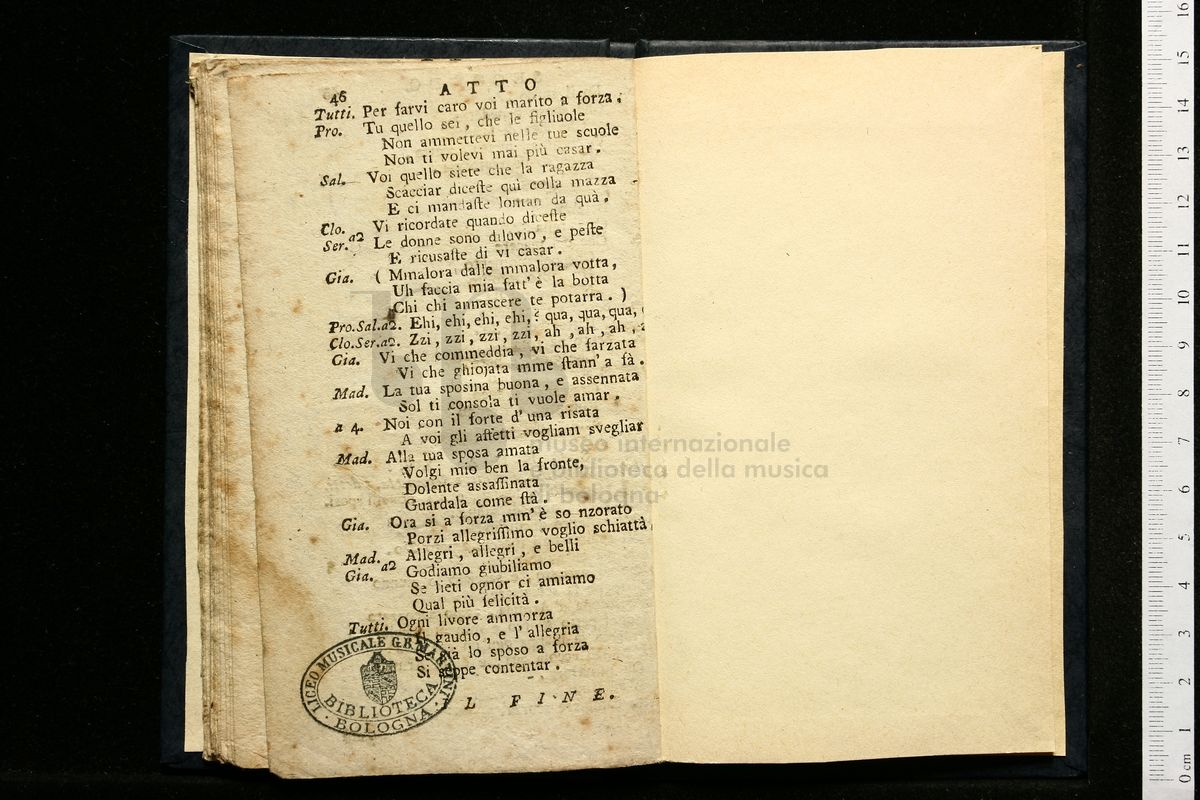 46
ATTO
Tutti. Per farvi caro voi marito a forza.
Pro. Tu quello sei, che le figliuole
Non ammettevi nelle tue scuole
Non ti volevi mai più casar.
Sal. Voi quello siete che la ragazza
Scacciar diceſte quì colla mazza
E ci mandaſte lontan da quà.
Clo. Vi ricordate quando diceſte
Ser. a2 Le donne sono diluvio, e peſte
E ricusaſte di vi casar.
Gia. ( Mmalora dalle mmalora votta,
Uh faccia mia fatt' è la botta
Chi chi annascere te potarra. )
Pro.Sal.a2. Ehi, ehi, ehi, ehi, qua, qua, qua,
Clo.Ser.a2. Zzi, zzi, zzi, zzi, ah, ah, ah,
Gia. Vi che commeddia, vi che farzata
Vi che ghiojata mme ſtann' a fà.
Mad. La tua sposina buona, e assennata
Sol ti consola ti vuole amar.
a 4. Noi con il forte d' una risata
A voi gli affetti vogliam svegliar
Mad. Alla tua sposa amata
Volgi mio ben la fronte,
Dolente assaſſinata
Guardala come ſtà.
Gia. Ora si a forza mm' è so nzorato
Porzi allegriſſimo voglio schiattà
Mad. Allegri, allegri, e belli
Gia. a2 Godiamo giubiliamo
Se lieti ognor ci amiamo
Qual più felicità.
Tutti. Ogni livore ammorza
gaudio, e l' allegria
già lo sposo a forza
Si contentar.
L FINE.
LICEO MUSICALE G.B. MARTINI
BIBLIOTECA
BOLOGNA
museo internazionale
e biblioteca della musica
di bologna
0 cm 1 2 3 4 5 6 7 8 9 10 11 12 13 14 15 16